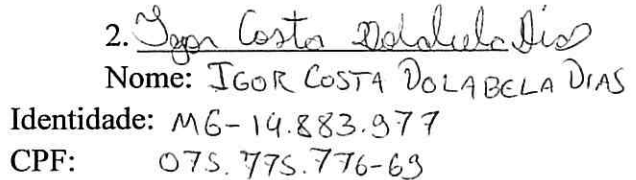 2. Igor Costa Dolabela Dias
Nome: IGOR COSTA DOLABELA DIAS
Identidade: MG-14.883.977
CPF: 075.775.776-69